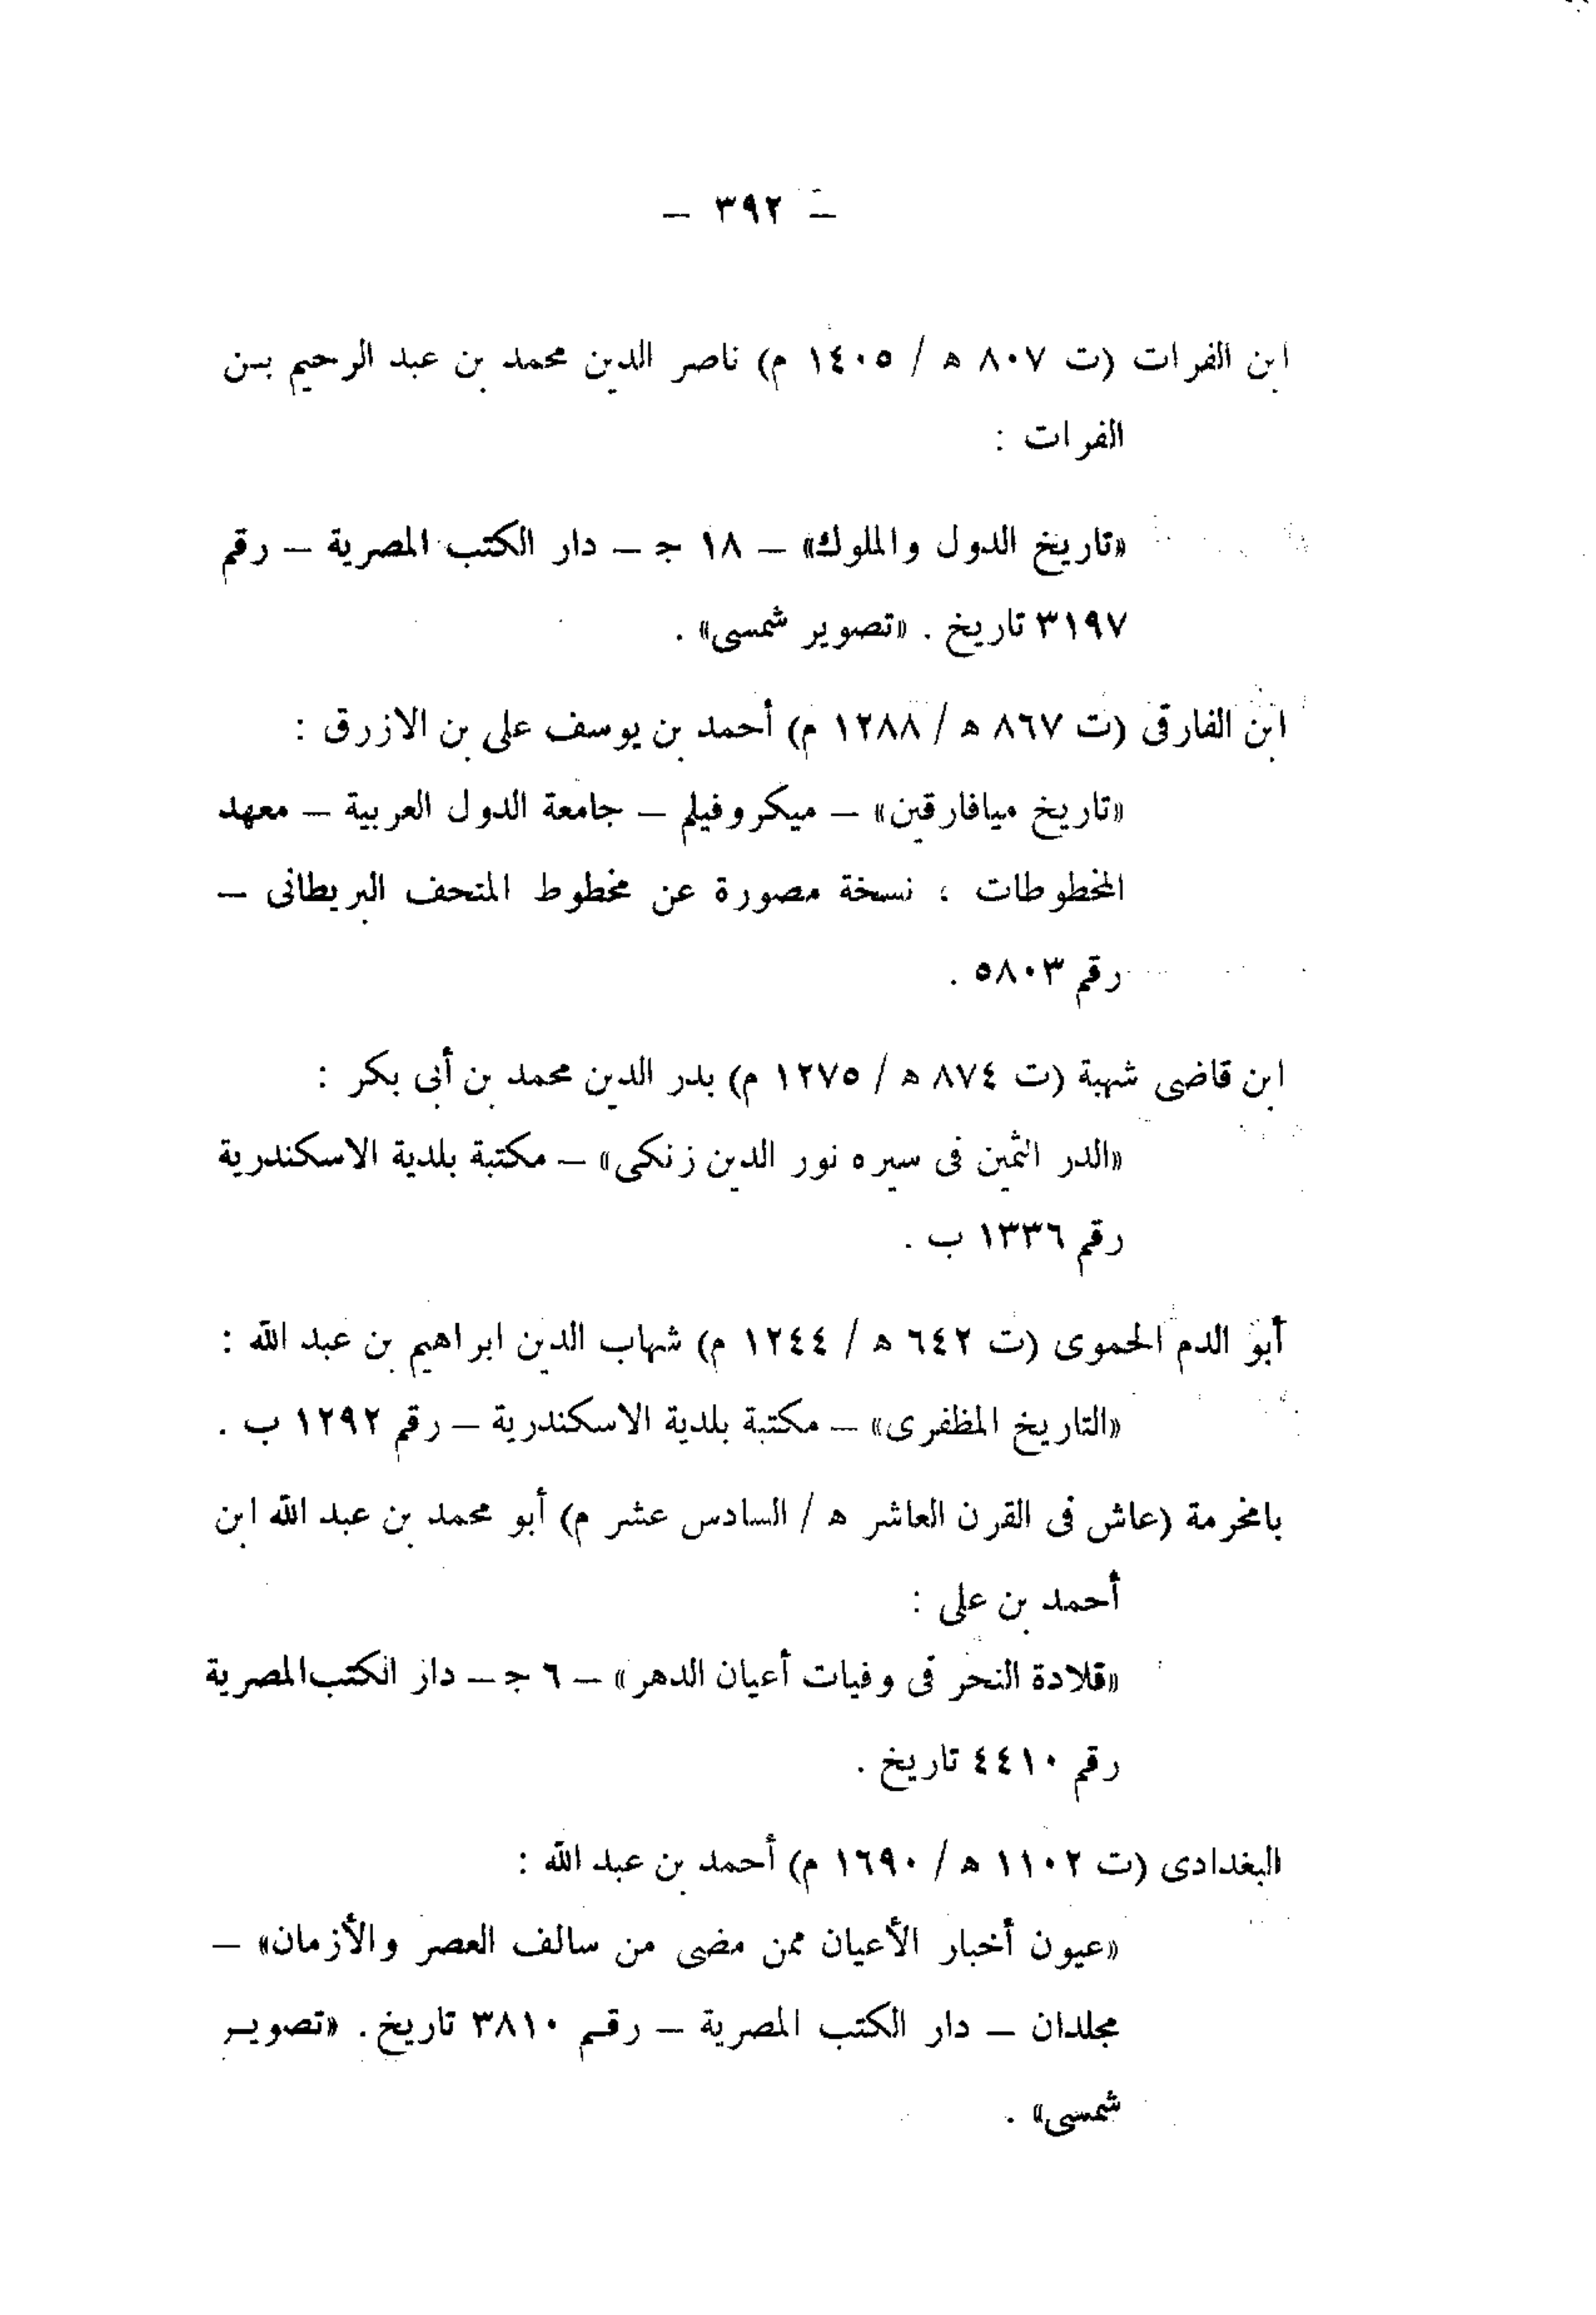 — ٣٩٢ —
ابن الفرات (ت ٨٠٧ ه / ١٤٠٥ م) ناصر الدين محمد بن عبد الرحيم بن
الفرات :
«تاريخ الدول والملوك» — ١٨ ج — دار الكتب المصرية — رقم
٣١٩٧ تاريخ . «تصوير شمسى» .
ابن الفارقى (ت ٨٦٧ ه / ١٢٨٨ م) أحمد بن يوسف على بن الازرق :
«تاريخ ميافارقين» — ميكروفيلم — جامعة الدول العربية — معهد
المخطوطات ؛ نسخة مصورة عن مخطوط المتحف البريطانى —
رقم ٥٨٠٣ .
ابن قاضى شهبة (ت ٨٧٤ ه / ١٢٧٥ م) بدر الدين محمد بن أبى بكر :
«الدر الثمين فى سيره نور الدين زنكى» — مكتبة بلدية الاسكندرية
رقم ١٣٣٦ ب .
أبو الدم الحموى (ت ٦٤٢ ه / ١٢٤٤ م) شهاب الدين ابراهيم بن عبد الله :
«التاريخ المظفرى» — مكتبة بلدية الاسكندرية — رقم ١٢٩٢ ب .
بامخرمة (عاش فى القرن العاشر ه / السادس عشر م) أبو محمد بن عبد الله ابن
أحمد بن على :
«قلادة النحر فى وفيات أعيان الدهر» — ٦ ج — دار الكتب المصرية
رقم ٤٤١٠ تاريخ .
البغدادى (ت ١١٠٢ ه / ١٦٩٠ م) أحمد بن عبد الله :
«عيون أخبار الأعيان ممن مضى من سالف العصر والأزمان» —
مجلدان — دار الكتب المصرية — رقم ٣٨١٠ تاريخ. «تصوير
شمسى» .